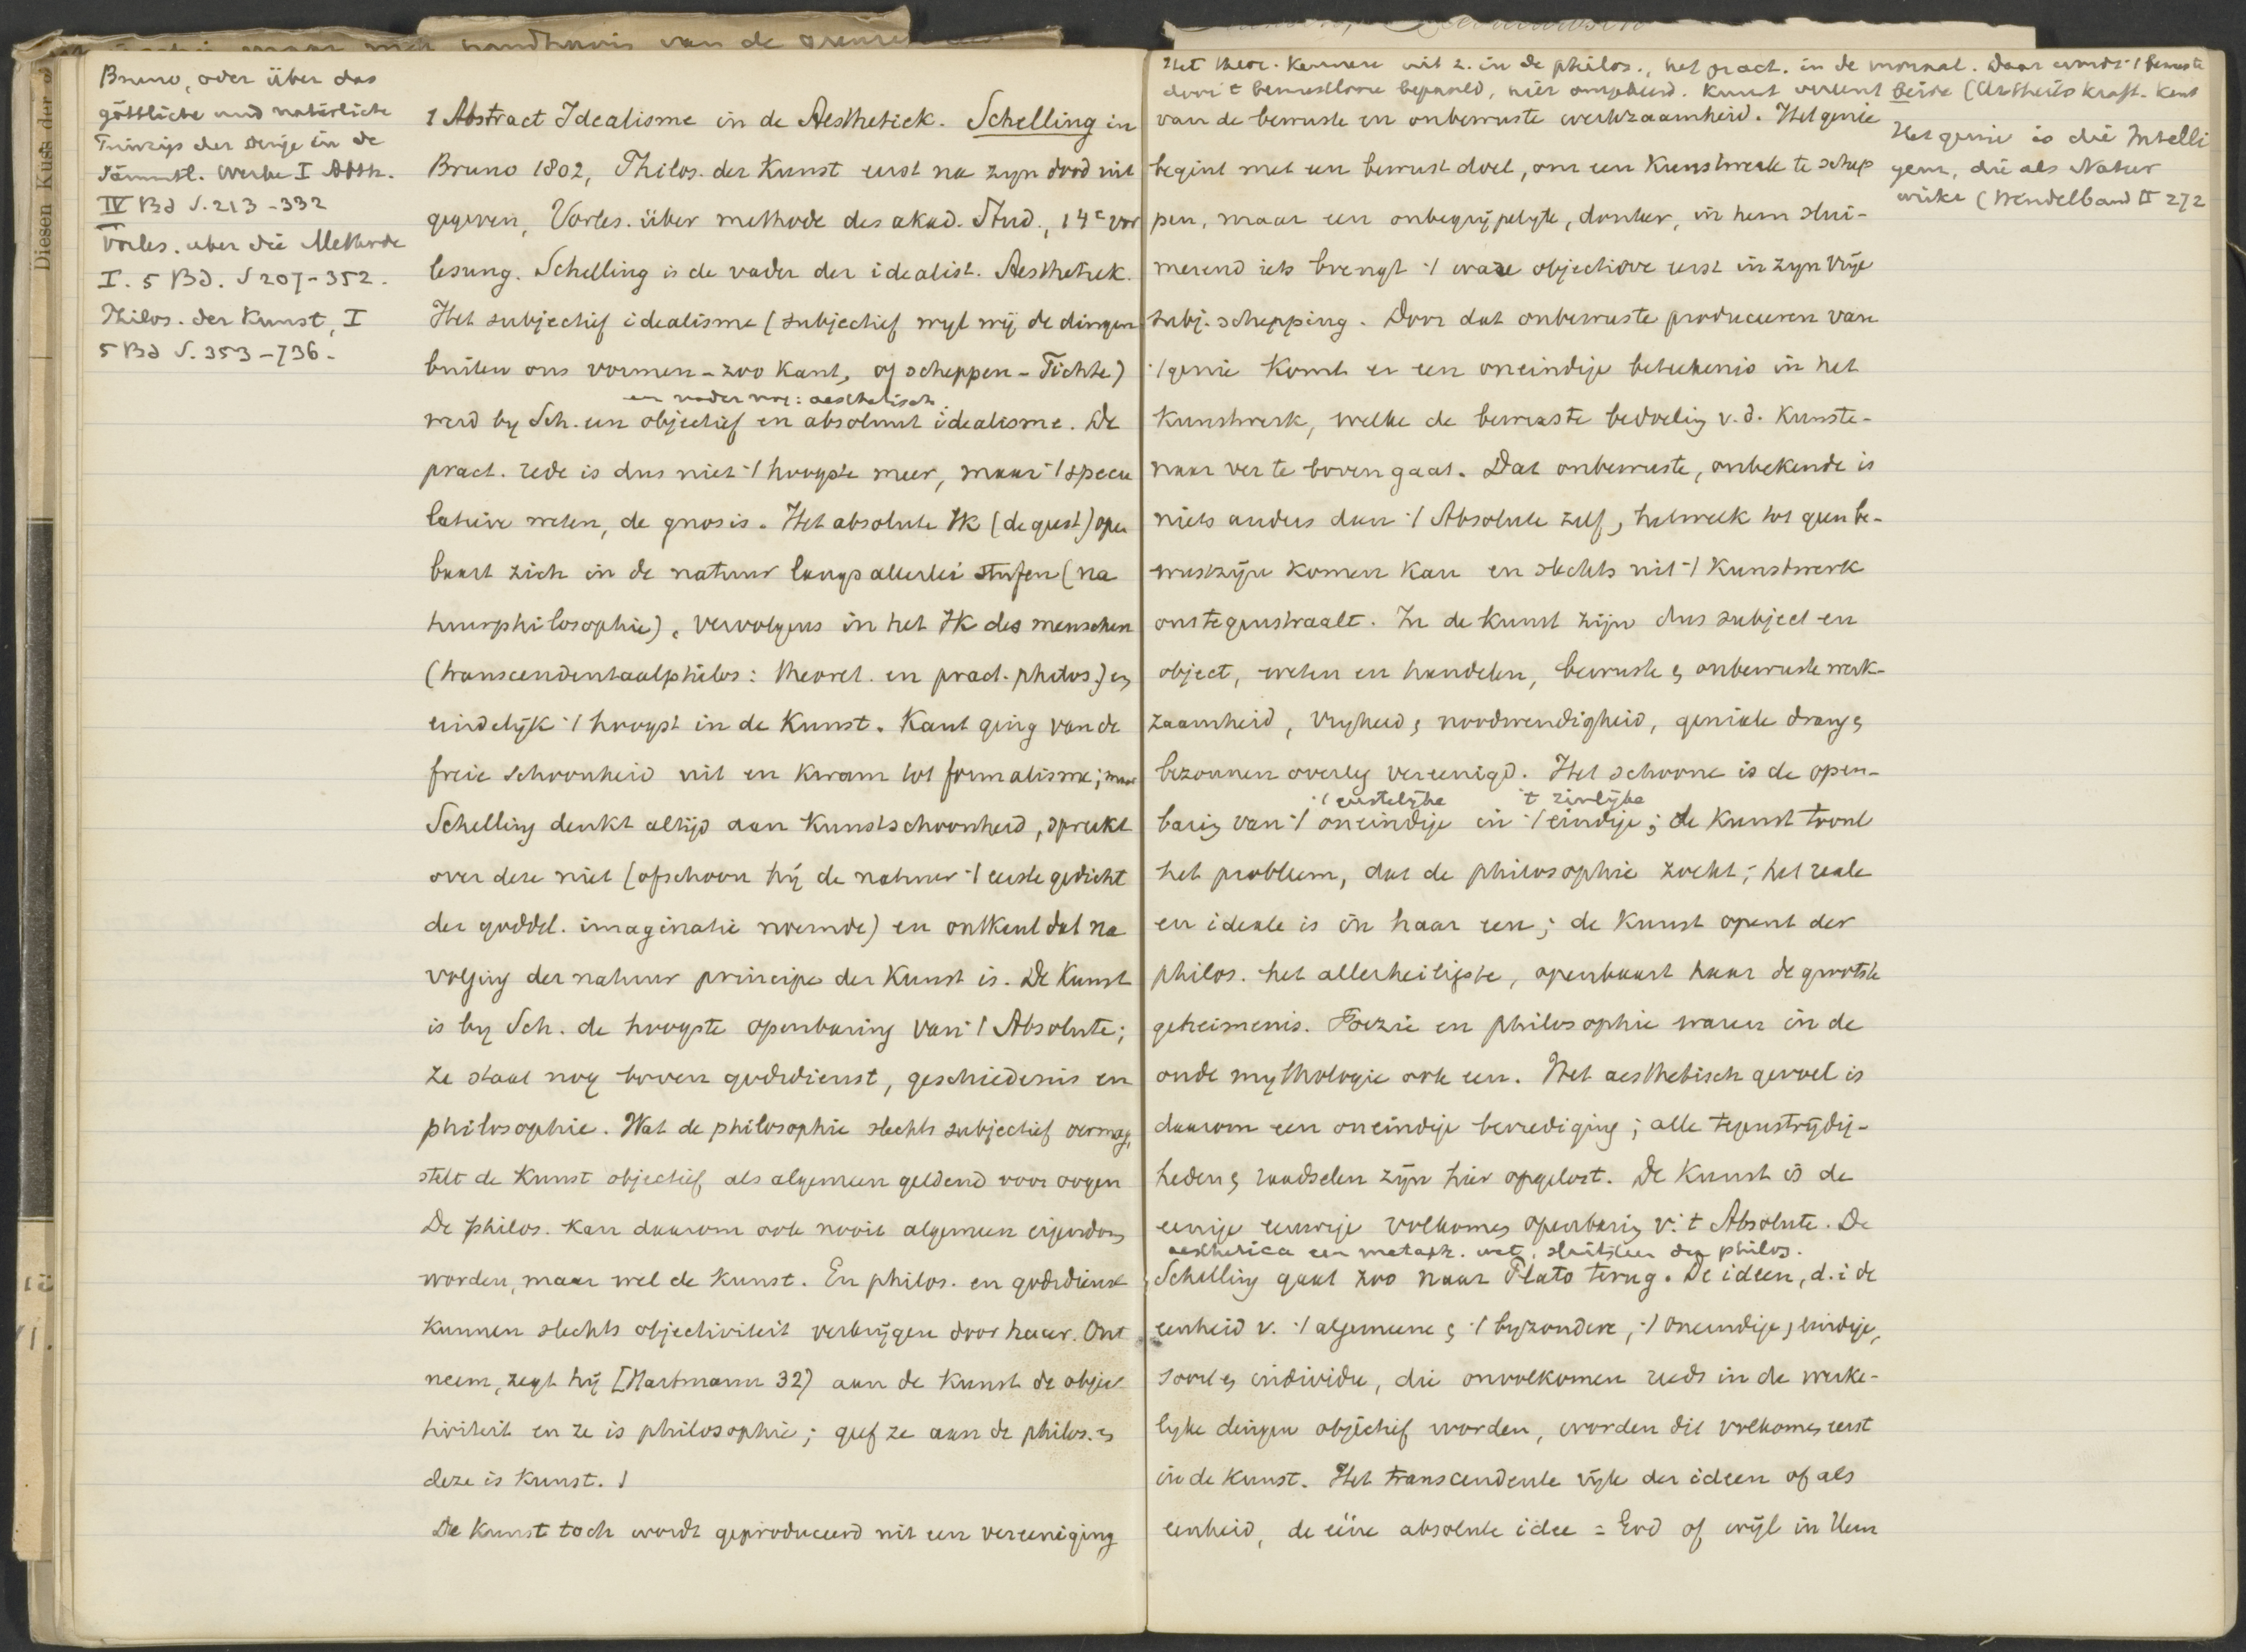 Bruno, oder über das
göttliche und natürliche
Princip der Dinge in de
Sämmtl. Werke I Abth.
IV Bd S. 213-332
Vorles. über die Methode
I. 5 Bd. S 207-352.
Philos. der Kunst, I
5 Bd S. 353-736.
1 Abstract Idealisme in de Aesthetiek. Schelling in
Bruno 1802, Philos. der Kunst eerst na zyn dood uit
gegeven, Vorles. über methode des akad. Stud., 14e Vor
lesung. Schelling is de vader der idealist. Aesthetiek.
Het subjectief idealisme (subjectief wyl wij de dingen
buiten ons vormen - zoo Kant, of scheppen - Fichte)
en nader nog: aesthetisch
werd by Sch. een objectief en absoluut idealisme. De
pract. rede is dus niet 't hoogste meer, maar 't specu
latieve weten, de gnosis. Het absolute Ik (de geest) open
baart zich in de natuur langs allerlei stufen (na
tuurphilosophie), vervolgens in het Ik des menschen
(transcendentaalphilos: theoret. en pract. philos.) en
eindelijk 't hoogst in de Kunst. Kant ging van de
freie schoonheid uit en kwam tot formalisme; maar
Schelling denkt altijd aan Kunstschoonheid, spreekt
over deze niet (ofschoon hij de natuur 't eerste gedicht
der goddel. imaginatie noemde) en ontkent dat na
volging der natuur principe der Kunst is. De Kunst
is by Sch. de hoogste openbaring van 't Absolute;
ze staat nog boven godsdienst, geschiedenis en
philosophie. Wat de philosophie slechts subjectief vermag,
stelt de Kunst objectief als algemeen geldend voor oogen
De philos. kan daarom ook nooit algemeen eigendom
worden, maar wel de Kunst. En philos. en godsdienst
kunnen slechts objectiviteit verkrijgen door haar. Ont
neem, zegt hij [Hartmann 32) aan de Kunst de objec
tiviteit en ze is philosophie; geef ze aan de philos. en
deze is Kunst. 1
De Kunst toch wordt geproduceerd uit een vereeniging
Het theor. kennen uit z. in de philos., het pract. in de moraal. Daar wordt 't bewuste
door 't bewustlooze bepaald, hier omgekeerd. Kunst vereent beide (Urtheilskraft. Kant
van de bewuste en onbewuste werkzaamheid. Het genie
Het genie is die Intelli
genz, die als Natur
wirkt (Windelband II 272
begint met een bewust doel, om een Kunstwerk te schep
pen, maar een onbegrijpelyke, donker, in hem slui-
merend iets brengt 't ware objectieve eerst in zyn vrije
subj. schepping. Door dat onbewuste produceeren van
't genie komt er een oneindige beteekenis in het
Kunstwerk, welke de bewuste bedoeling v.d. Kunste-
naar ver te boven gaat. Dat onbewuste, onbekende is
niets anders dan 't Absolute zelf, hetwelk tot geen be-
wustzijn komen kan en slechts uit 't Kunstwerk
ons tegenstraalt. In de kunst zijn dus subject en
object, weten en handelen, bewuste en onbewuste werk-
zaamheid, vryheid en noodwendigheid, geniale drang en
bezonnen overleg vereenigd. Het schoone is de open-
't geestelijke 't zinlijke
baring van 't oneindige in 't eindige; de Kunst toont
het probleem, dat de philosophie zocht; het reale
en ideale is in haar een; de Kunst opent der
philos. het allerheiligste, openbaart haar de grootste
geheimenis. Poezie en philosophie waren in de
oude mythologie ook een. Het aesthetisch gevoel is
daarom een oneindige bevrediging; alle tegenstrijdig-
heden en raadselen zijn hier opgelost. De Kunst is de
eenige eeuwige volkomen openbaring v. 't Absolute. De
aesthetica een metaph. wet, sluitsteen der philos.
Schelling gaat zoo naar Plato terug. De ideen, d.i de
eenheid v. 't algemeene en 't byzondere, 't oneindige, eindige,
soort en individu, die onvolkomen reeds in de werke-
lyke dingen objectief worden, worden dit volkomen eerst
in de Kunst. Het transcendente ryk der ideen of als
eenheid, de eéne absolute idee = God of wijl in Hem